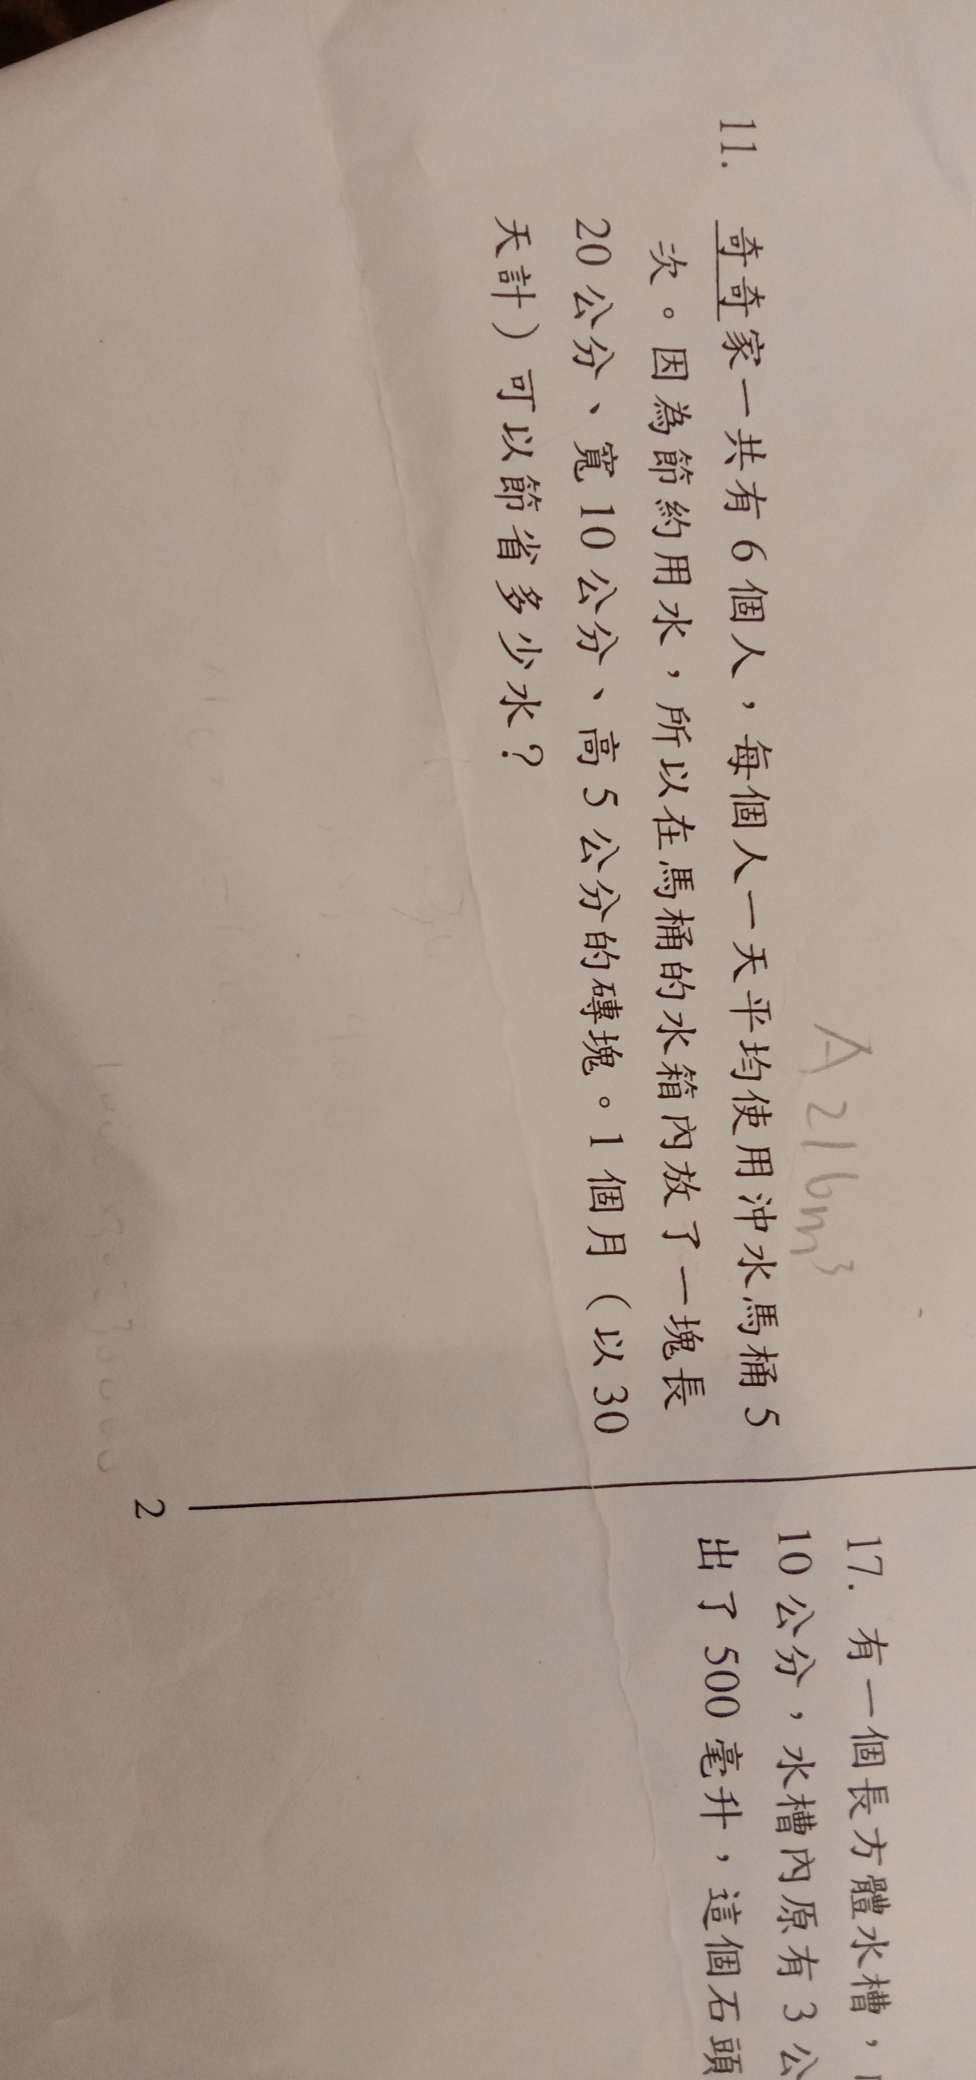 A 216m³
11. 奇奇家一共有6個人，每個人一天平均使用沖水馬桶5
次。因為節約用水，所以在馬桶的水箱內放了一塊長
20公分、寬10公分、高5公分的磚塊。1個月（以30
天計）可以節省多少水？
2
17. 有一個長方體水槽，
10公分，水槽內原有3公
出了500毫升，這個石頭